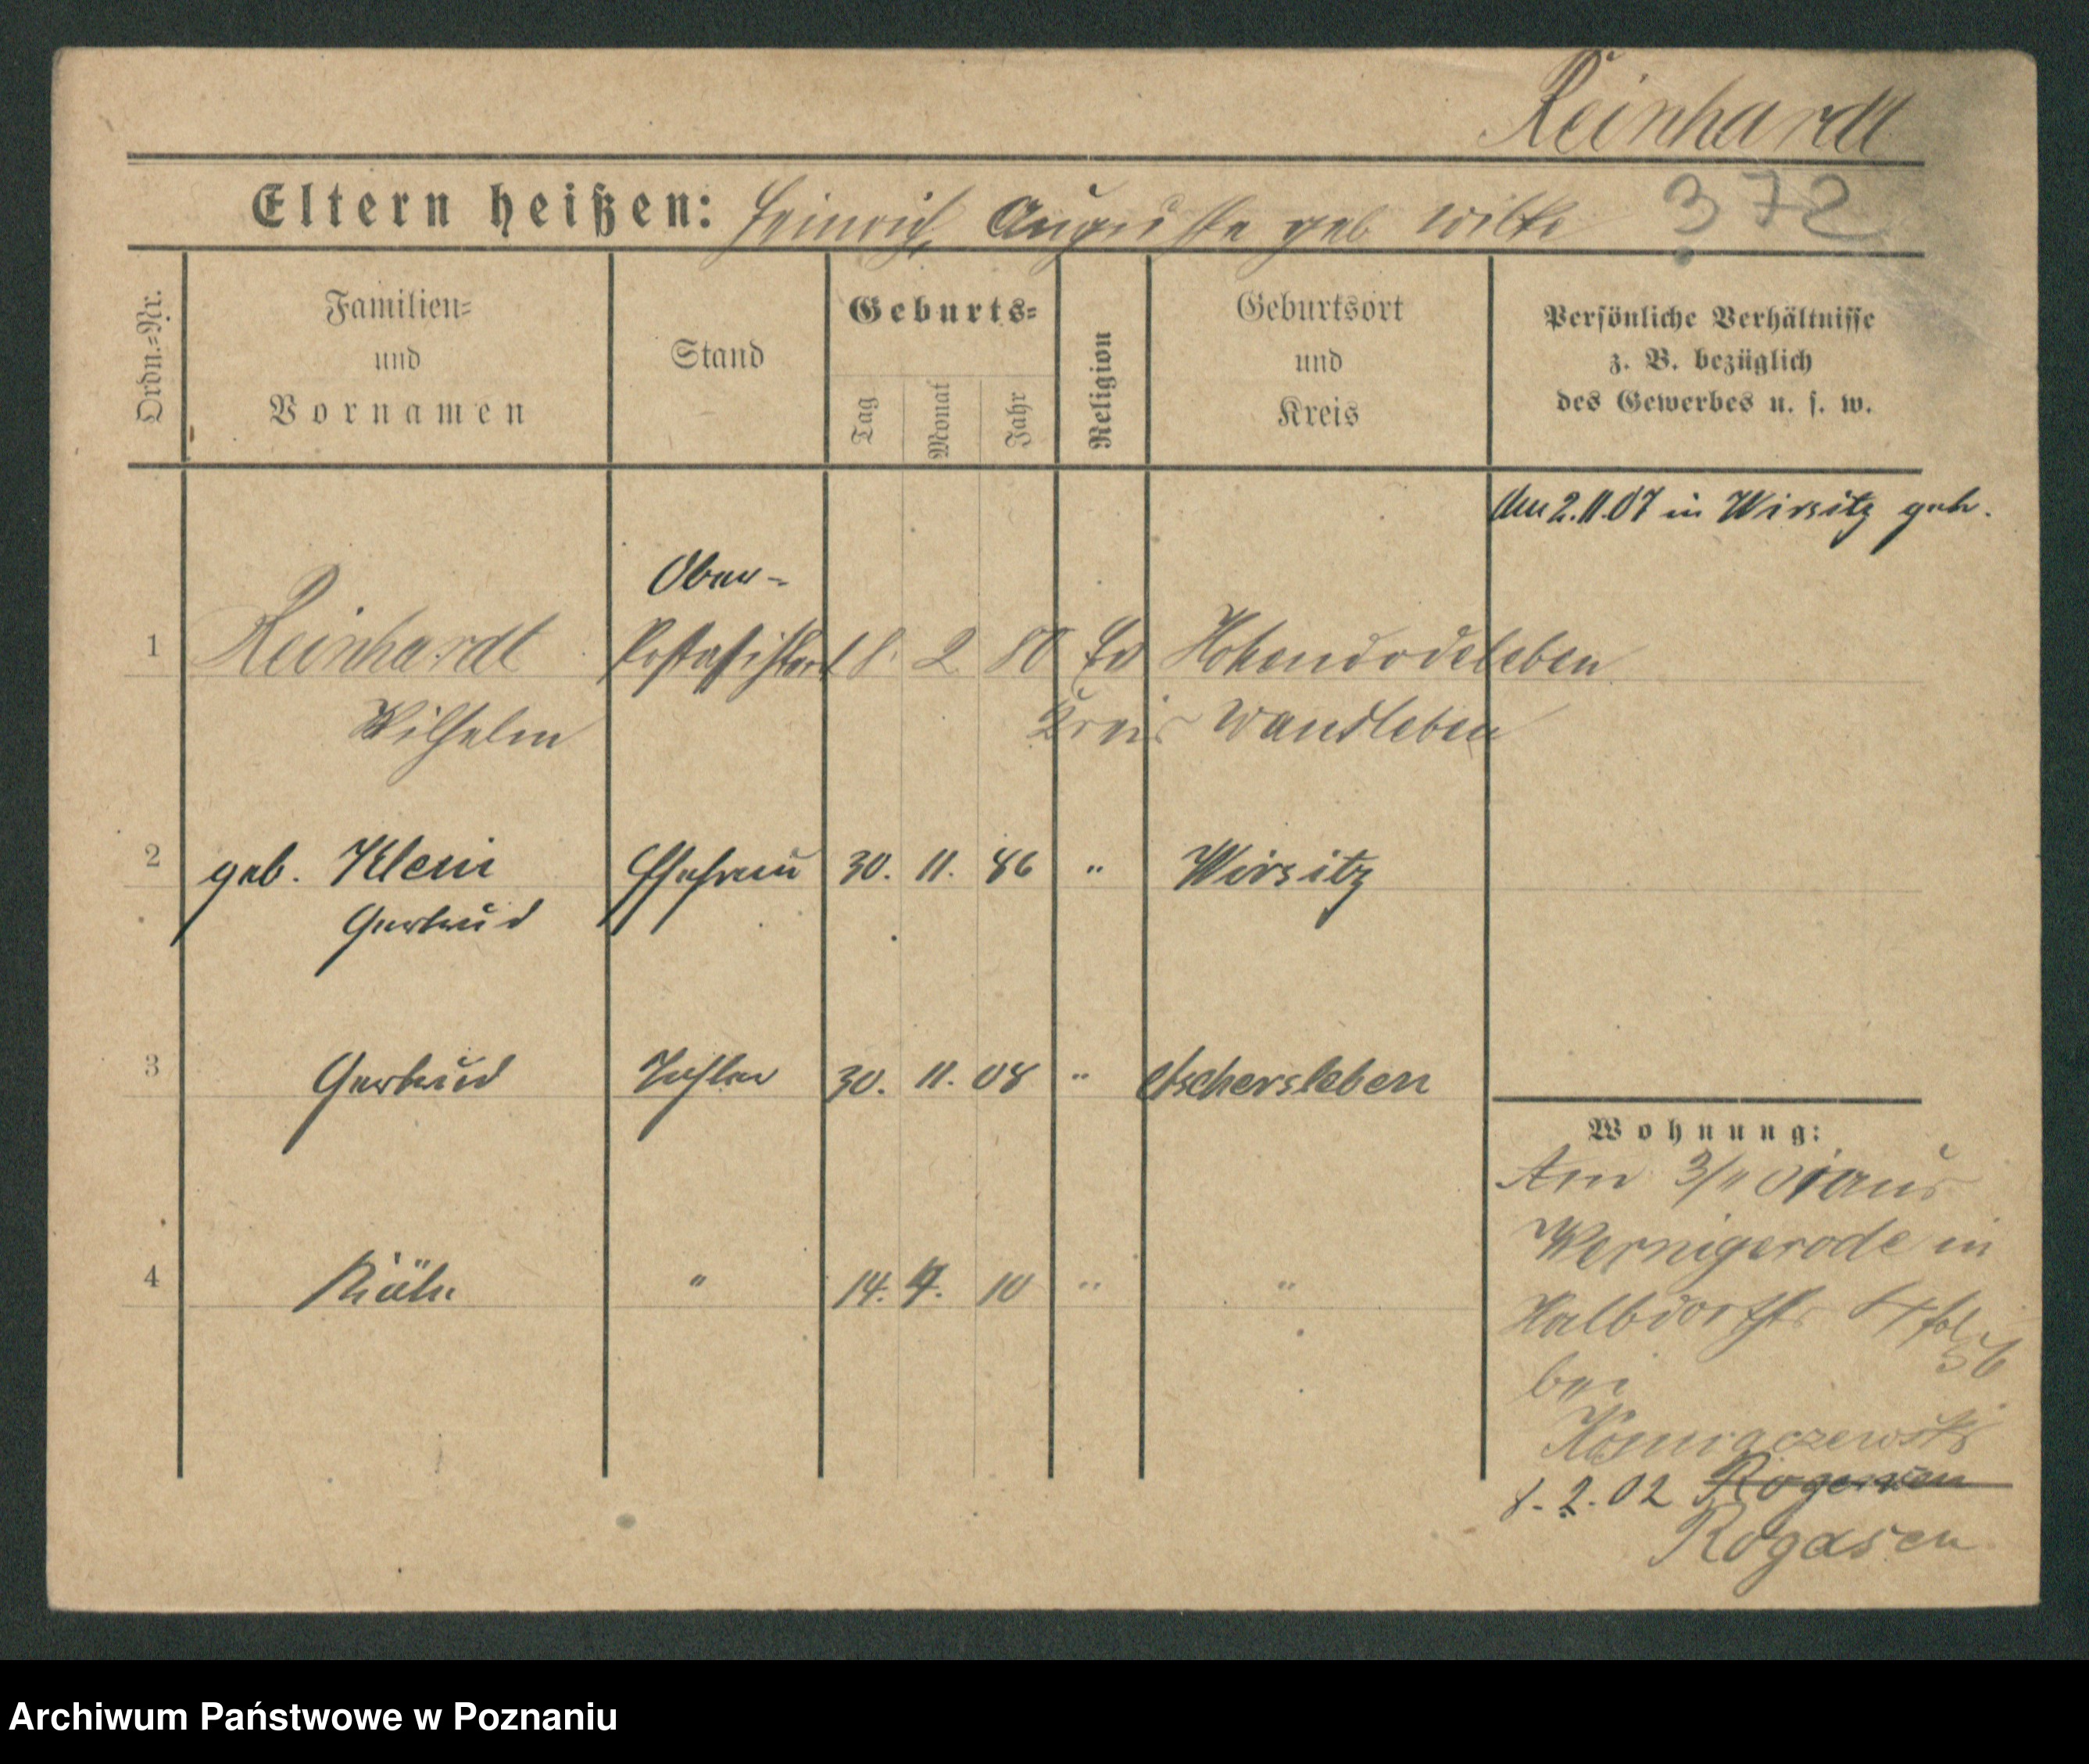 Reinhardt
Eltern heißen: Heinrich, Auguste geb Wilke 372
Ordn.-Nr.
Familien-
und
Vornamen
Stand
Geburts-
Tag
Monat
Jahr
Religion
Geburtsort
und
Kreis
Persönliche Verhältnisse
z. B. bezüglich
des Gewerbes u. s. w.
den 2.11.07 in Wirsitz geh.
Ober-
1 Reinhardt Postassistent 8. 2 80 Ev Hohendodeleben
Wilhelm Kreis Wandleben
2 geb. Klein Ehefrau 30. 11. 86 " Wirsitz
Gertrud
3 Gertrud Tochter 30. 11. 08 " Aschersleben
4 " 14. 4. 10 " "
Wohnung:
Am 3/11 01 aus
Wernigerode in
Halbdorfstr
bei
8.2.02 Rogasen
Rogasen
Archiwum Państwowe w Poznaniu